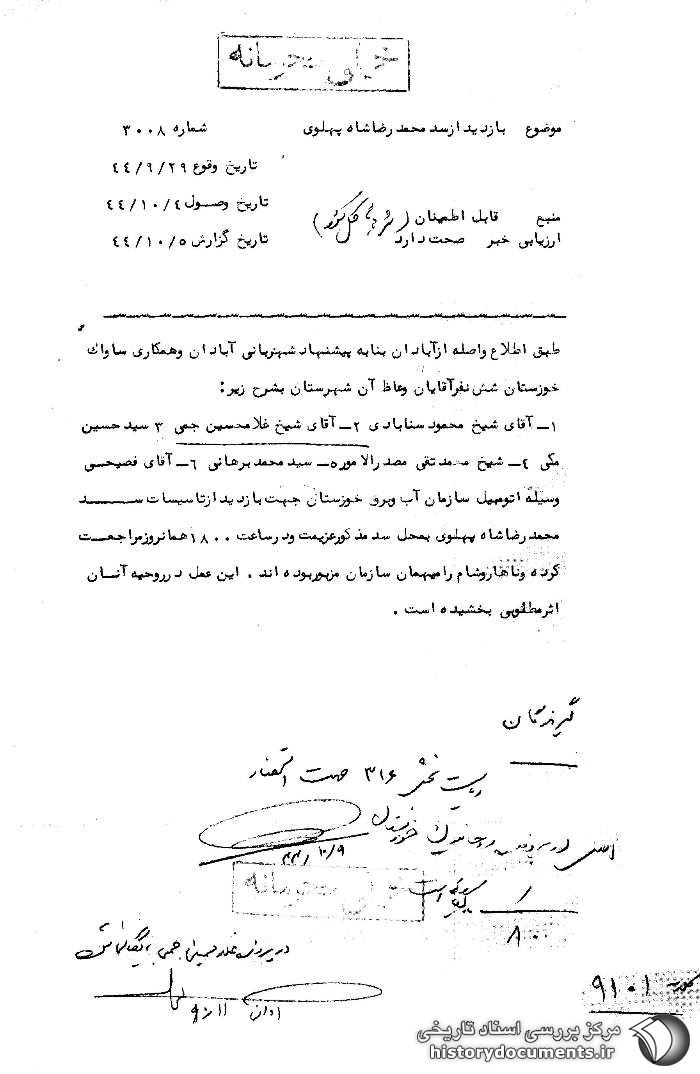 خیلی محرمانه
موضوع بازدید از سد محمد رضا شاه پهلوی شماره ۳۰۰۸
تاریخ وقوع ۴۴/۹/۲۹
تاریخ وصول ۴۴/۱۰/۴
منبع قابل اطمینان
ارزیابی خبر صحت دارد تاریخ گزارش ۴۴/۱۰/۵
طبق اطلاع واصله از آبادان بنا به پیشنهاد شهربانی آبادان و همکاری ساواک
خوزستان شش نفر آقایان وعاظ آن شهرستان بشرح زیر:
۱ـ آقای شیخ محمود سنابادی ۲ـ آقای شیخ غلامحسین جمی ۳ سید حسین
مکی ۴ـ شیخ محمد تقی مصدرالامور ۵ـ سید محمد برهانی ۶ـ آقای فصیحی
وسیله اتومبیل سازمان آب و برق خوزستان جهت بازدید از تاسیسات سد
محمد رضا شاه پهلوی بمحل سد مذکور عزیمت و در ساعت ۱۸۰۰ همانروز مراجعت
کرده و ناهار و شام را میهمان سازمان مزبور بوده اند . این عمل در روحیه آنان
اثر مطلوبی بخشیده است .
گیرندگان
ریاست بخش ۳۱۶ جهت استحضار
خوزستان
۴۴/۱۰/۹
خیلی محرمانه
است
۸۰۰
در پرونده غلامحسین جمی بایگانی
۹۱۰۱
مرکز بررسی اسناد تاریخی
historydocuments.ir